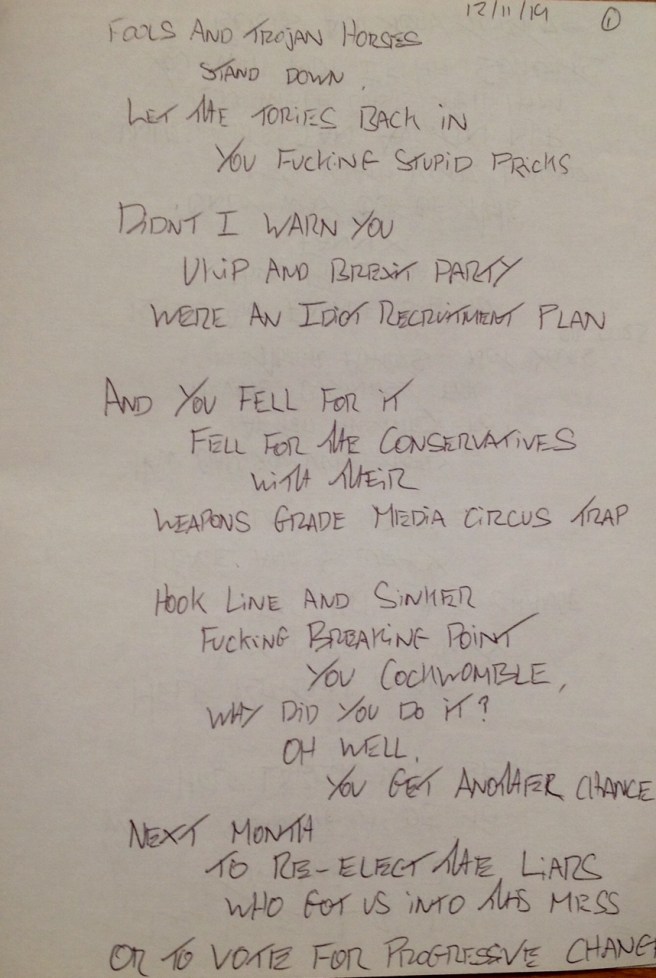 12/11/19 1
FOOLS AND TROJAN HORSES
STAND DOWN,
LET THE TORIES BACK IN
YOU FUCKING STUPID PRICKS
DIDNT I WARN YOU
UKIP AND BREXIT PARTY
WERE AN IDIOT RECRUITMENT PLAN
AND YOU FELL FOR IT
FELL FOR THE CONSERVATIVES
WITH THEIR
WEAPONS GRADE MEDIA CIRCUS TRAP
HOOK LINE AND SINKER
FUCKING BREAKING POINT
YOU COCKWOMBLE,
WHY DID YOU DO IT?
OH WELL,
YOU GET ANOTHER CHANCE
NEXT MONTH
TO RE-ELECT THE LIARS
WHO GOT US INTO THIS MESS
OR TO VOTE FOR PROGRESSIVE CHANGE